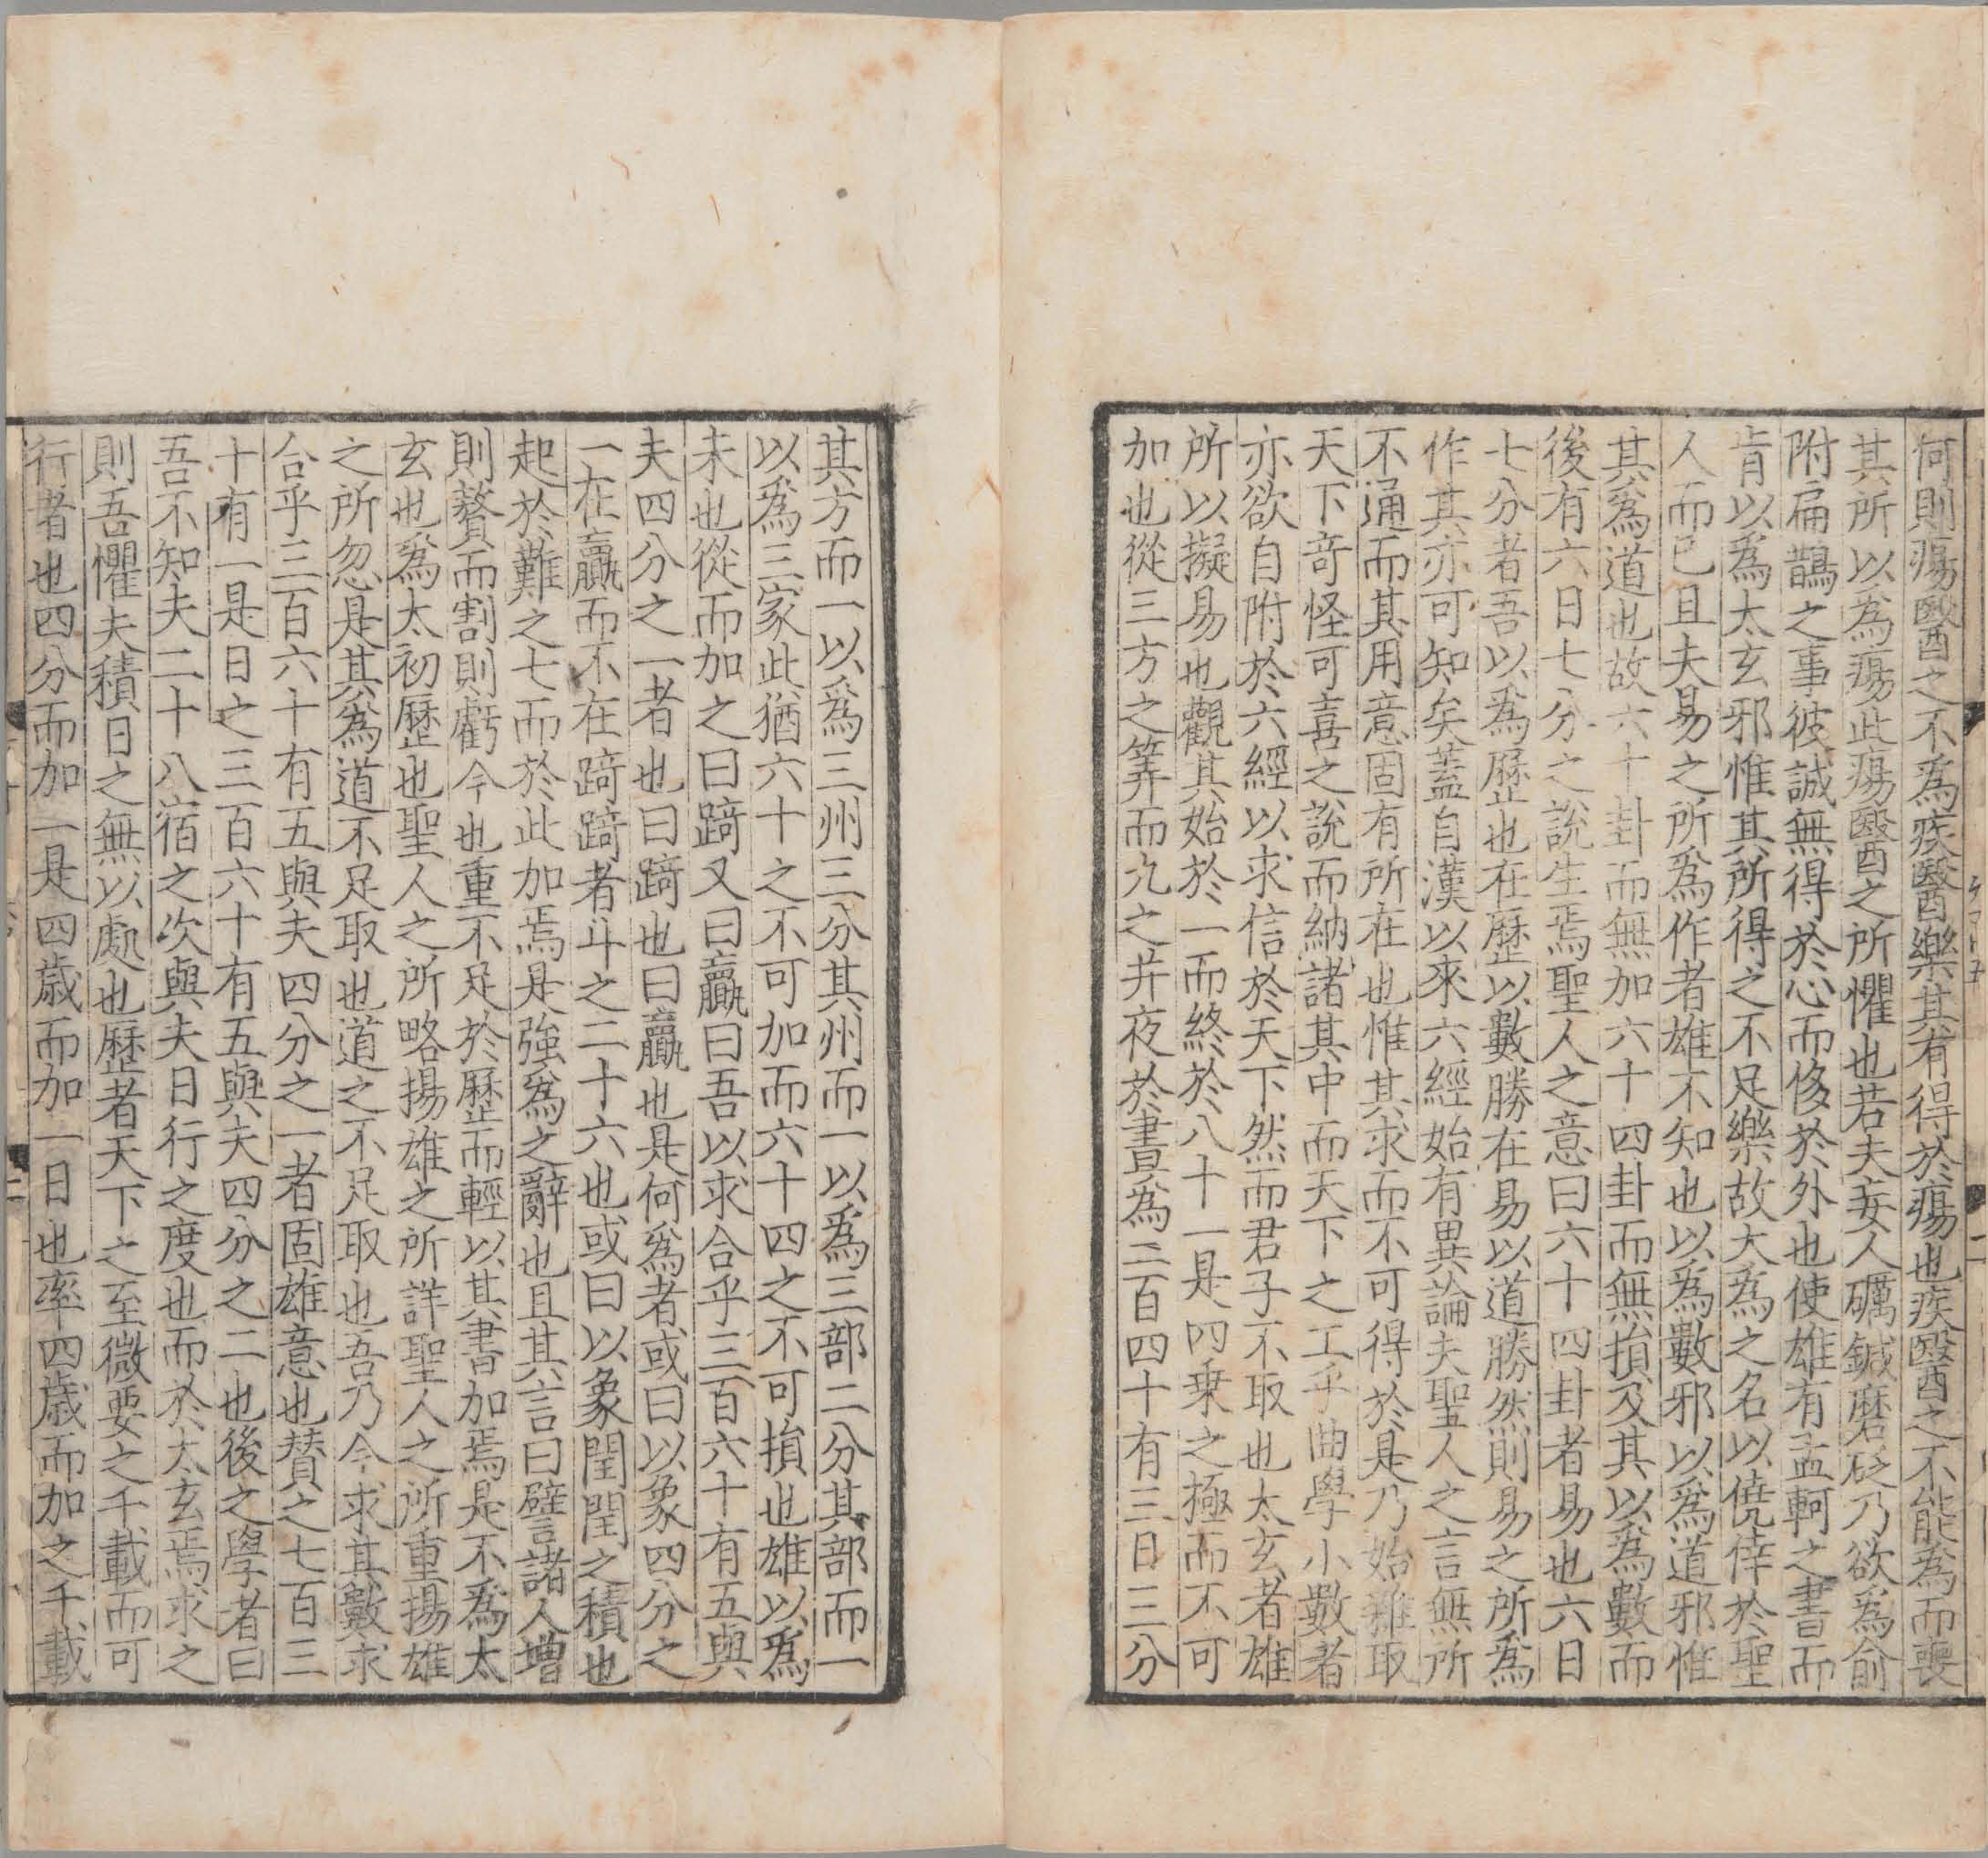 何則瘍醫之不為疾醫樂其有得於瘍也疾醫之不能為而喪
其所以為瘍此瘍醫之所懼也若夫妄人礪鍼磨砭乃欲為俞
附扁鵲之事彼誠無得於心而侈於外也使雄有孟軻之書而
肯以為太玄邪惟其所得之不足樂故大為之名以僥倖於聖
人而已且夫易之所為作者雄不知也以為數邪以為道邪惟
其為道也故六十卦而無加六十四卦而無損及其以為數而
後有六日七分之說生焉聖人之意曰六十四卦者易也六日
七分者吾以為歷也在歷以數勝在易以道勝然則易之所為
作其亦可知矣蓋自漢以來六經始有異論夫聖人之言無所
不通而其用意固有所在也惟其求而不可得於是乃始雜取
天下奇怪可喜之說而納諸其中而天下之工乎曲學小數者
亦欲自附於六經以求信於天下然而君子不取也太玄者雄
所以擬易也觀其始於一而終於八十一是四乘之極而不可
加也從三方之筭而九之并夜於晝為二百四十有三日三分
其方而一以為三州三分其州而一以為三部三分其部而一
以為三家此猶六十之不可加而六十四之不可損也雄以為
未也從而加之曰踦又曰贏曰吾以求合乎三百六十有五與
夫四分之一者也曰踦也曰贏也是何為者或曰以象四分之
一在贏而不在踦踦者斗之二十六也或曰以象閏閏之積也
起於難之七而於此加焉是強為之辭也且其言曰譬諸人增
則贅而割則虧今也重不足於歷而輕以其書加焉是不為太
玄也為太初歷也聖人之所略揚雄之所詳聖人之所重揚雄
之所忽是其為道不足取也道之不足取也吾乃今求其數求
合乎三百六十有五與夫四分之一者固雄意也贊之七百三
十有一是日之三百六十有五與夫四分之二也後之學者曰
吾不知夫二十八宿之次與夫日行之度也而於太玄焉求之
則吾懼夫積日之無以處也歷者天下之至微要之千載而可
行者也四分而加一是四歲而加一日也率四歲而加之千載